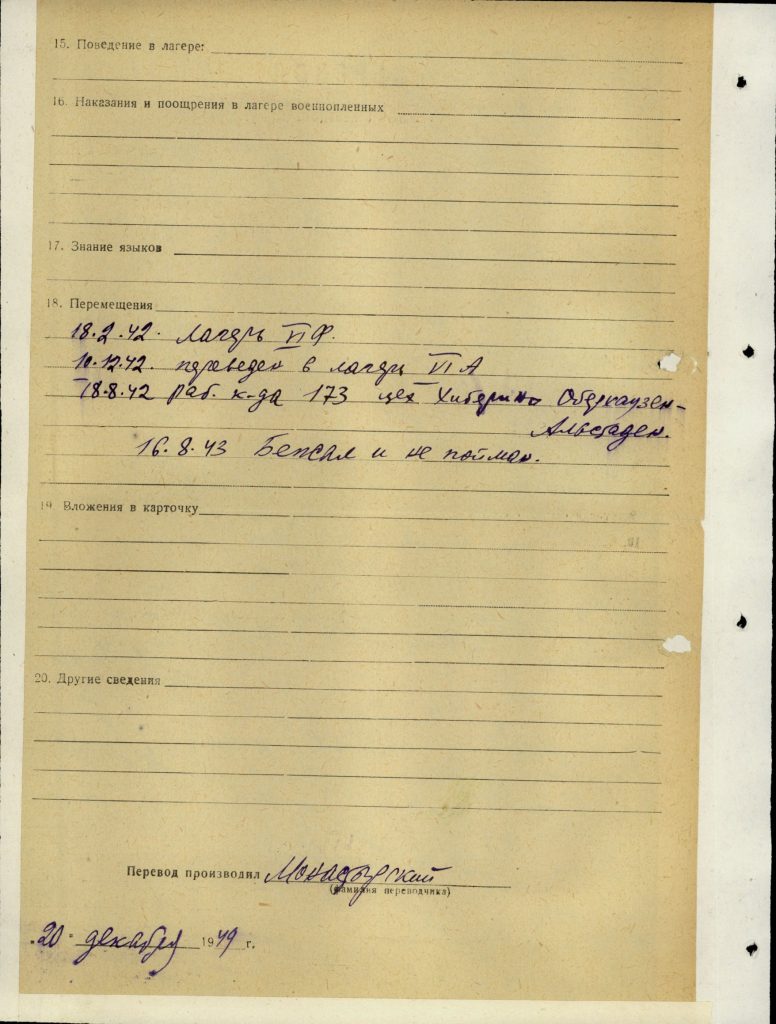 15. Поведение в лагере:
16. Наказания и поощрения в лагере военнопленных
17. Знание языков
18. Перемещения
18.2.42. лагерь VI Ф.
10.12.42. переведен в лагерь VI А
18.8.42 раб. к-да 173 цех Оберхаузен-
Альстаден.
16.8.43 Бежал и не пойман.
19. Вложения в карточку
20. Другие сведения
Перевод производил
(фамилия переводчика)
"20" декабря 1949 г.